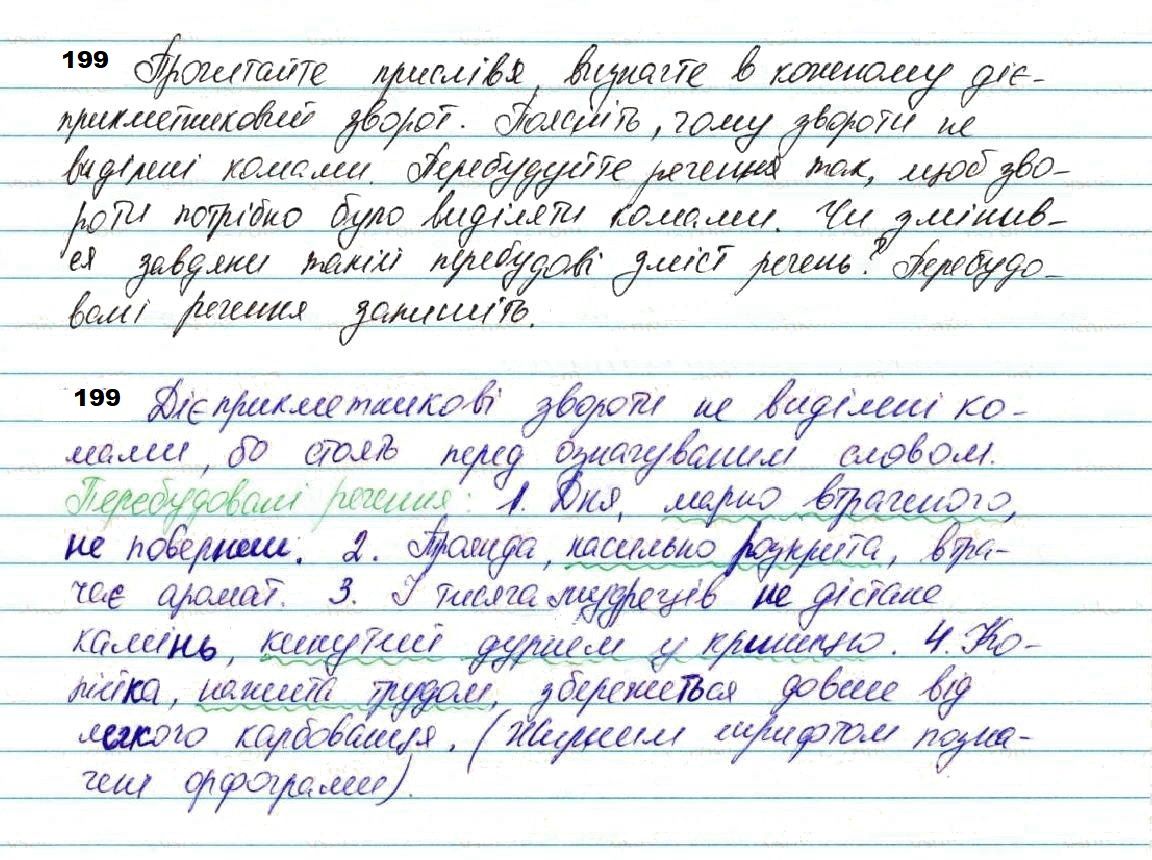 199 Прочитайте прислівя, визначте в кожному діє-
прикметниковий зворот. Поясніть, чому звороти не
виділені комами. Перебудуйте речення так, щоб зво-
роти потрібно було виділяти комами. Чи змінив-
ся завдяки такій перебудові зміст речень? Перебудо-
вані речення запишіть.
199 Дієприкметникові звороти не виділені ко-
мами, бо стоять перед означуваним словом.
Перебудовані речення: 1. Дня, марно втраченого,
не повернеш. 2. Троянда, насильно розкрита, втра-
чає аромат. 3. І тисяча мудреців не дістане
камінь, кинутий дурнем у криницю. 4. Ко-
пійка, нажита трудом, збережеться довше від
легкого карбованця. (Жирним шрифтом позна-
чені орфограми).